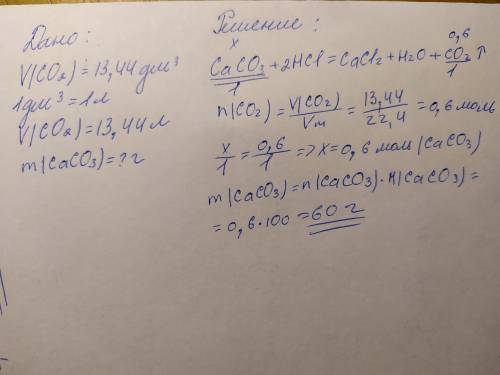 Дано:
V(CO₂) = 13,44 дм³
1 дм³ = 1 л
V(CO₂) = 13,44 л
m(CaCO₃) = ? г
Решение:
x 0,6
CaCO₃ + 2HCl = CaCl₂ + H₂O + CO₂ ↑
1 1
n(CO₂) = V(CO₂)/Vm = 13,44/22,4 = 0,6 моль
x/1 = 0,6/1 => x = 0,6 моль (CaCO₃)
m(CaCO₃) = n(CaCO₃) · M(CaCO₃) =
= 0,6 · 100 = 60 г